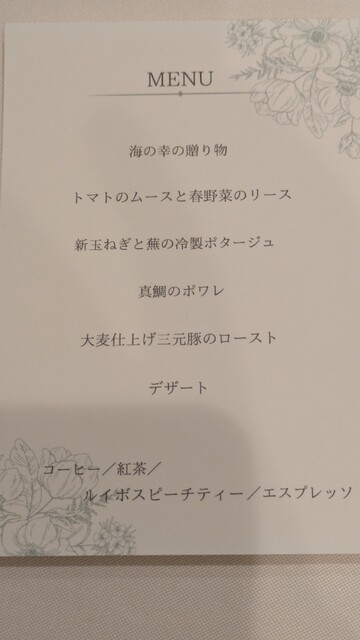 MENU
海の幸の贈り物
トマトのムースと春野菜のリース
新玉ねぎと蕪の冷製ポタージュ
真鯛のポワレ
大麦仕上げ三元豚のロースト
デザート
コーヒー／紅茶／
ルイボスピーチティー／エスプレッソ